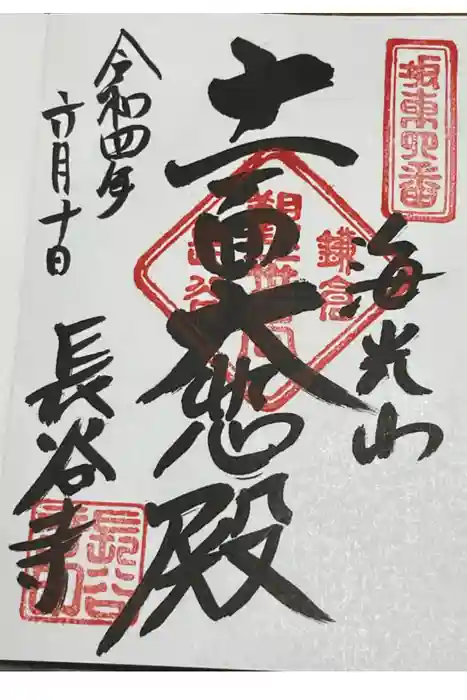 坂東四番
海光山
十一面大悲殿
鎌倉
長谷寺
令和四年
六月十日
長谷寺